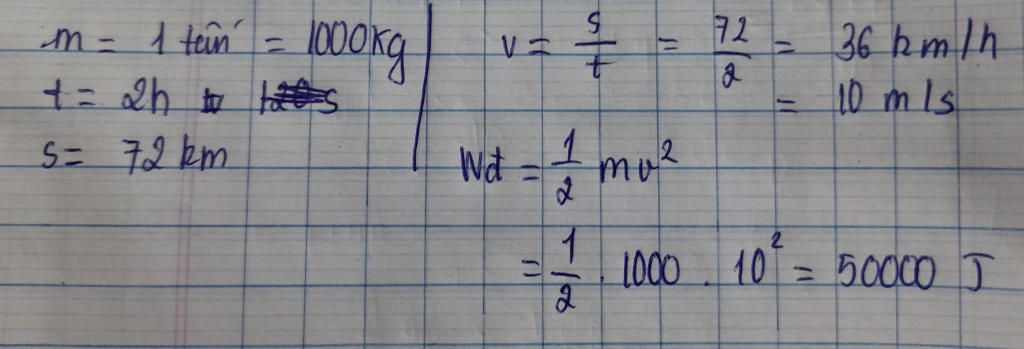 m = 1 tấn = 1000kg
t = 2h
s = 72 km
v = s/t = 72/2 = 36 km/h
= 10 m/s
Wđ = 1/2 mv²
= 1/2 . 1000 . 10² = 50000 J